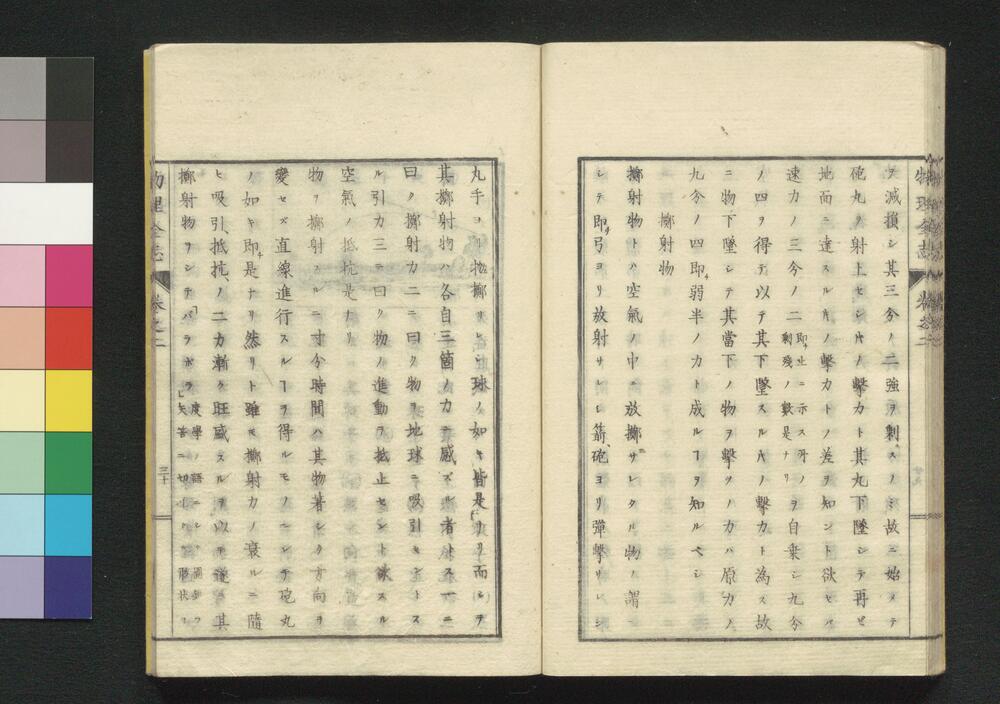 テ減損シ其三分ノ二強ヲ剰スノミ故ニ始メテ
砲丸ノ射上セシ片ノ撃力ト其丸下墜シテ再ヒ
地面ニ達スル片ノ撃力トノ差ヲ知ント欲セハ
速力ノ三分ノ二即上ニ示ス所ノ剰残ノ数是ナリヲ自乗シ九分
ノ四ヲ得テ以テ其下墜スル片ノ撃力ト為ス故
ニ物下墜シテ其當下ノ物ヲ撃ツノ力ハ原力ノ
九分ノ四即弱半ノ力ト成ルヿヲ知ルベシ
擲射物
擲射物トハ空氣ノ中ニ放擲サレタル物ノ謂ニ
シテ即弓ヨリ放射サレシ箭、砲ヨリ彈撃サレシ
丸手ヨリ抛擲サレシ球ノ如キ皆是ナリ而シテ
其擲射物ハ各自三箇ノ力ニ感ズル者トス一ニ
曰ク擲射力二ニ曰ク物ヲ地球ニ吸引セントス
ル引力三ニ曰ク物ノ進動ヲ抵止セント欲スル
空氣ノ抵抗是ナリ
物ヲ擲射スルニ寸分時間ハ其物著シク方向ヲ
變セズ直線進行スルヿヲ得ルモノニシテ砲丸
ノ如キ即是ナリ然リト雖モ擲射力ノ衰ルニ隨
ヒ吸引、抵抗、ノ二力漸ク旺盛スルヲ以テ遂ニ其
擲射物ヲシテ「パラボラ」度學ノ語ニシテ
物理全志 卷之二
三十